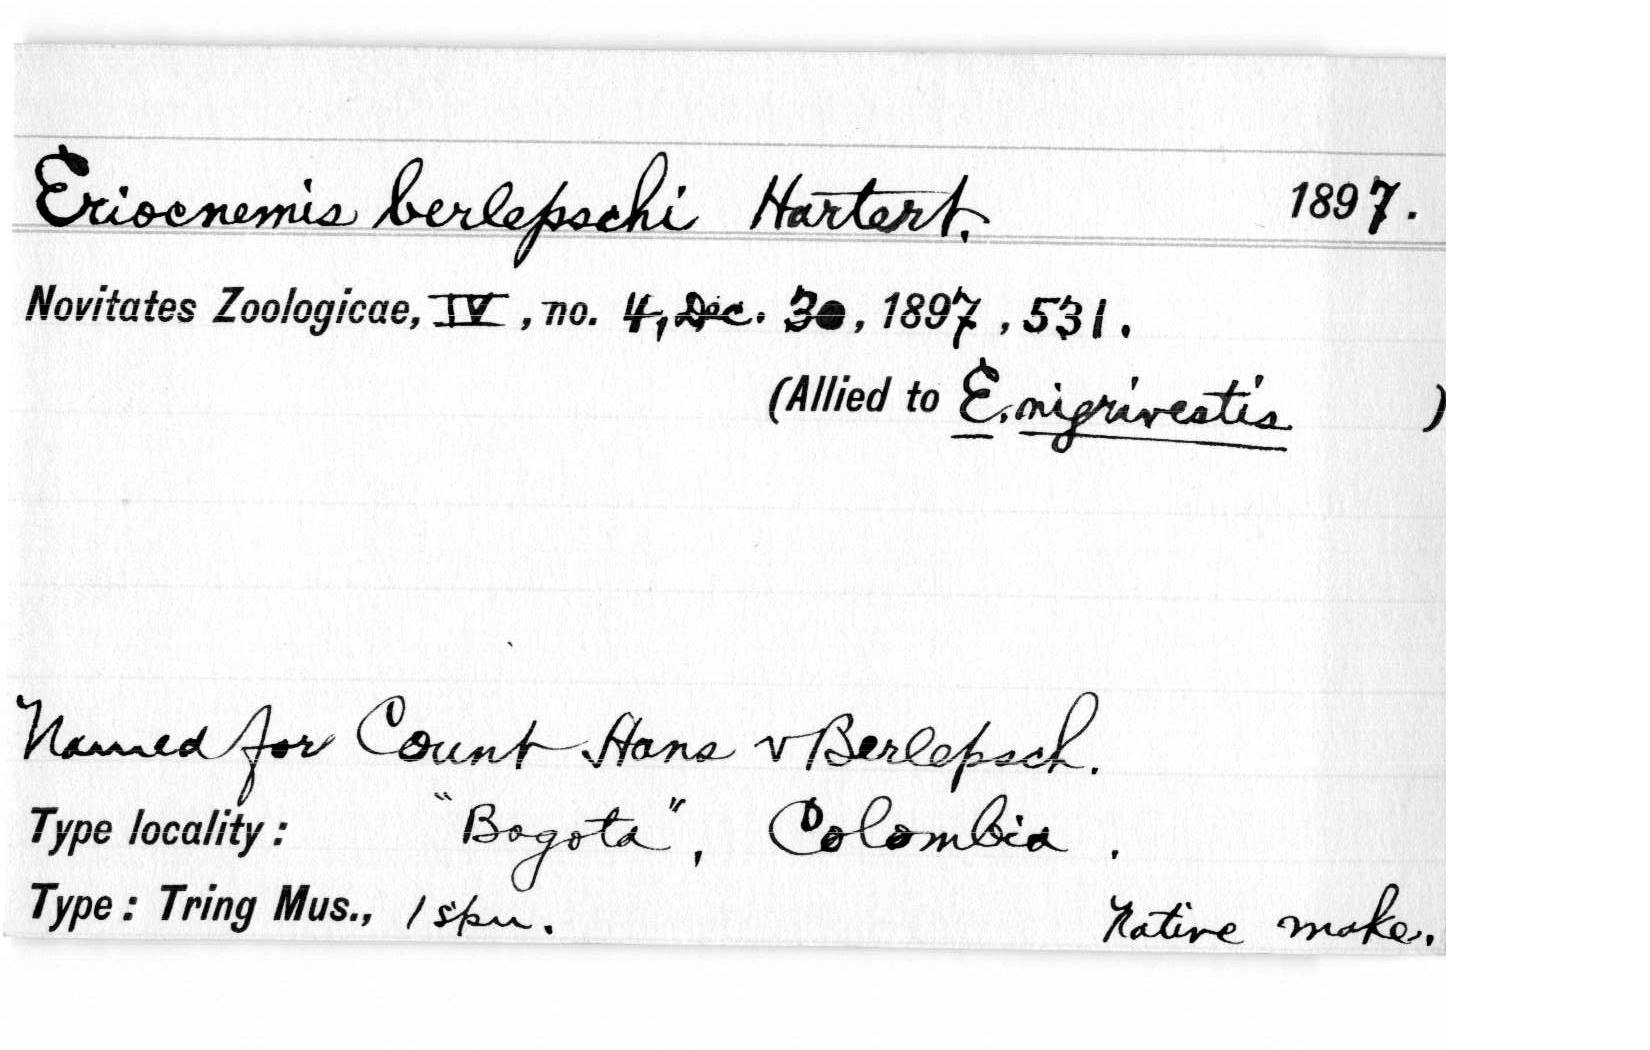 Eriocnemis berlepschi Hartert. 1897.
Novitates Zoologicae, IV, no. 4, Dec. 30, 1897, 531.
(Allied to E. nigrivestis )
Named for Count Hans v Berlepsch.
Type locality: "Bogota", Colombia.
Type: Tring Mus., 1 spm. Native make.